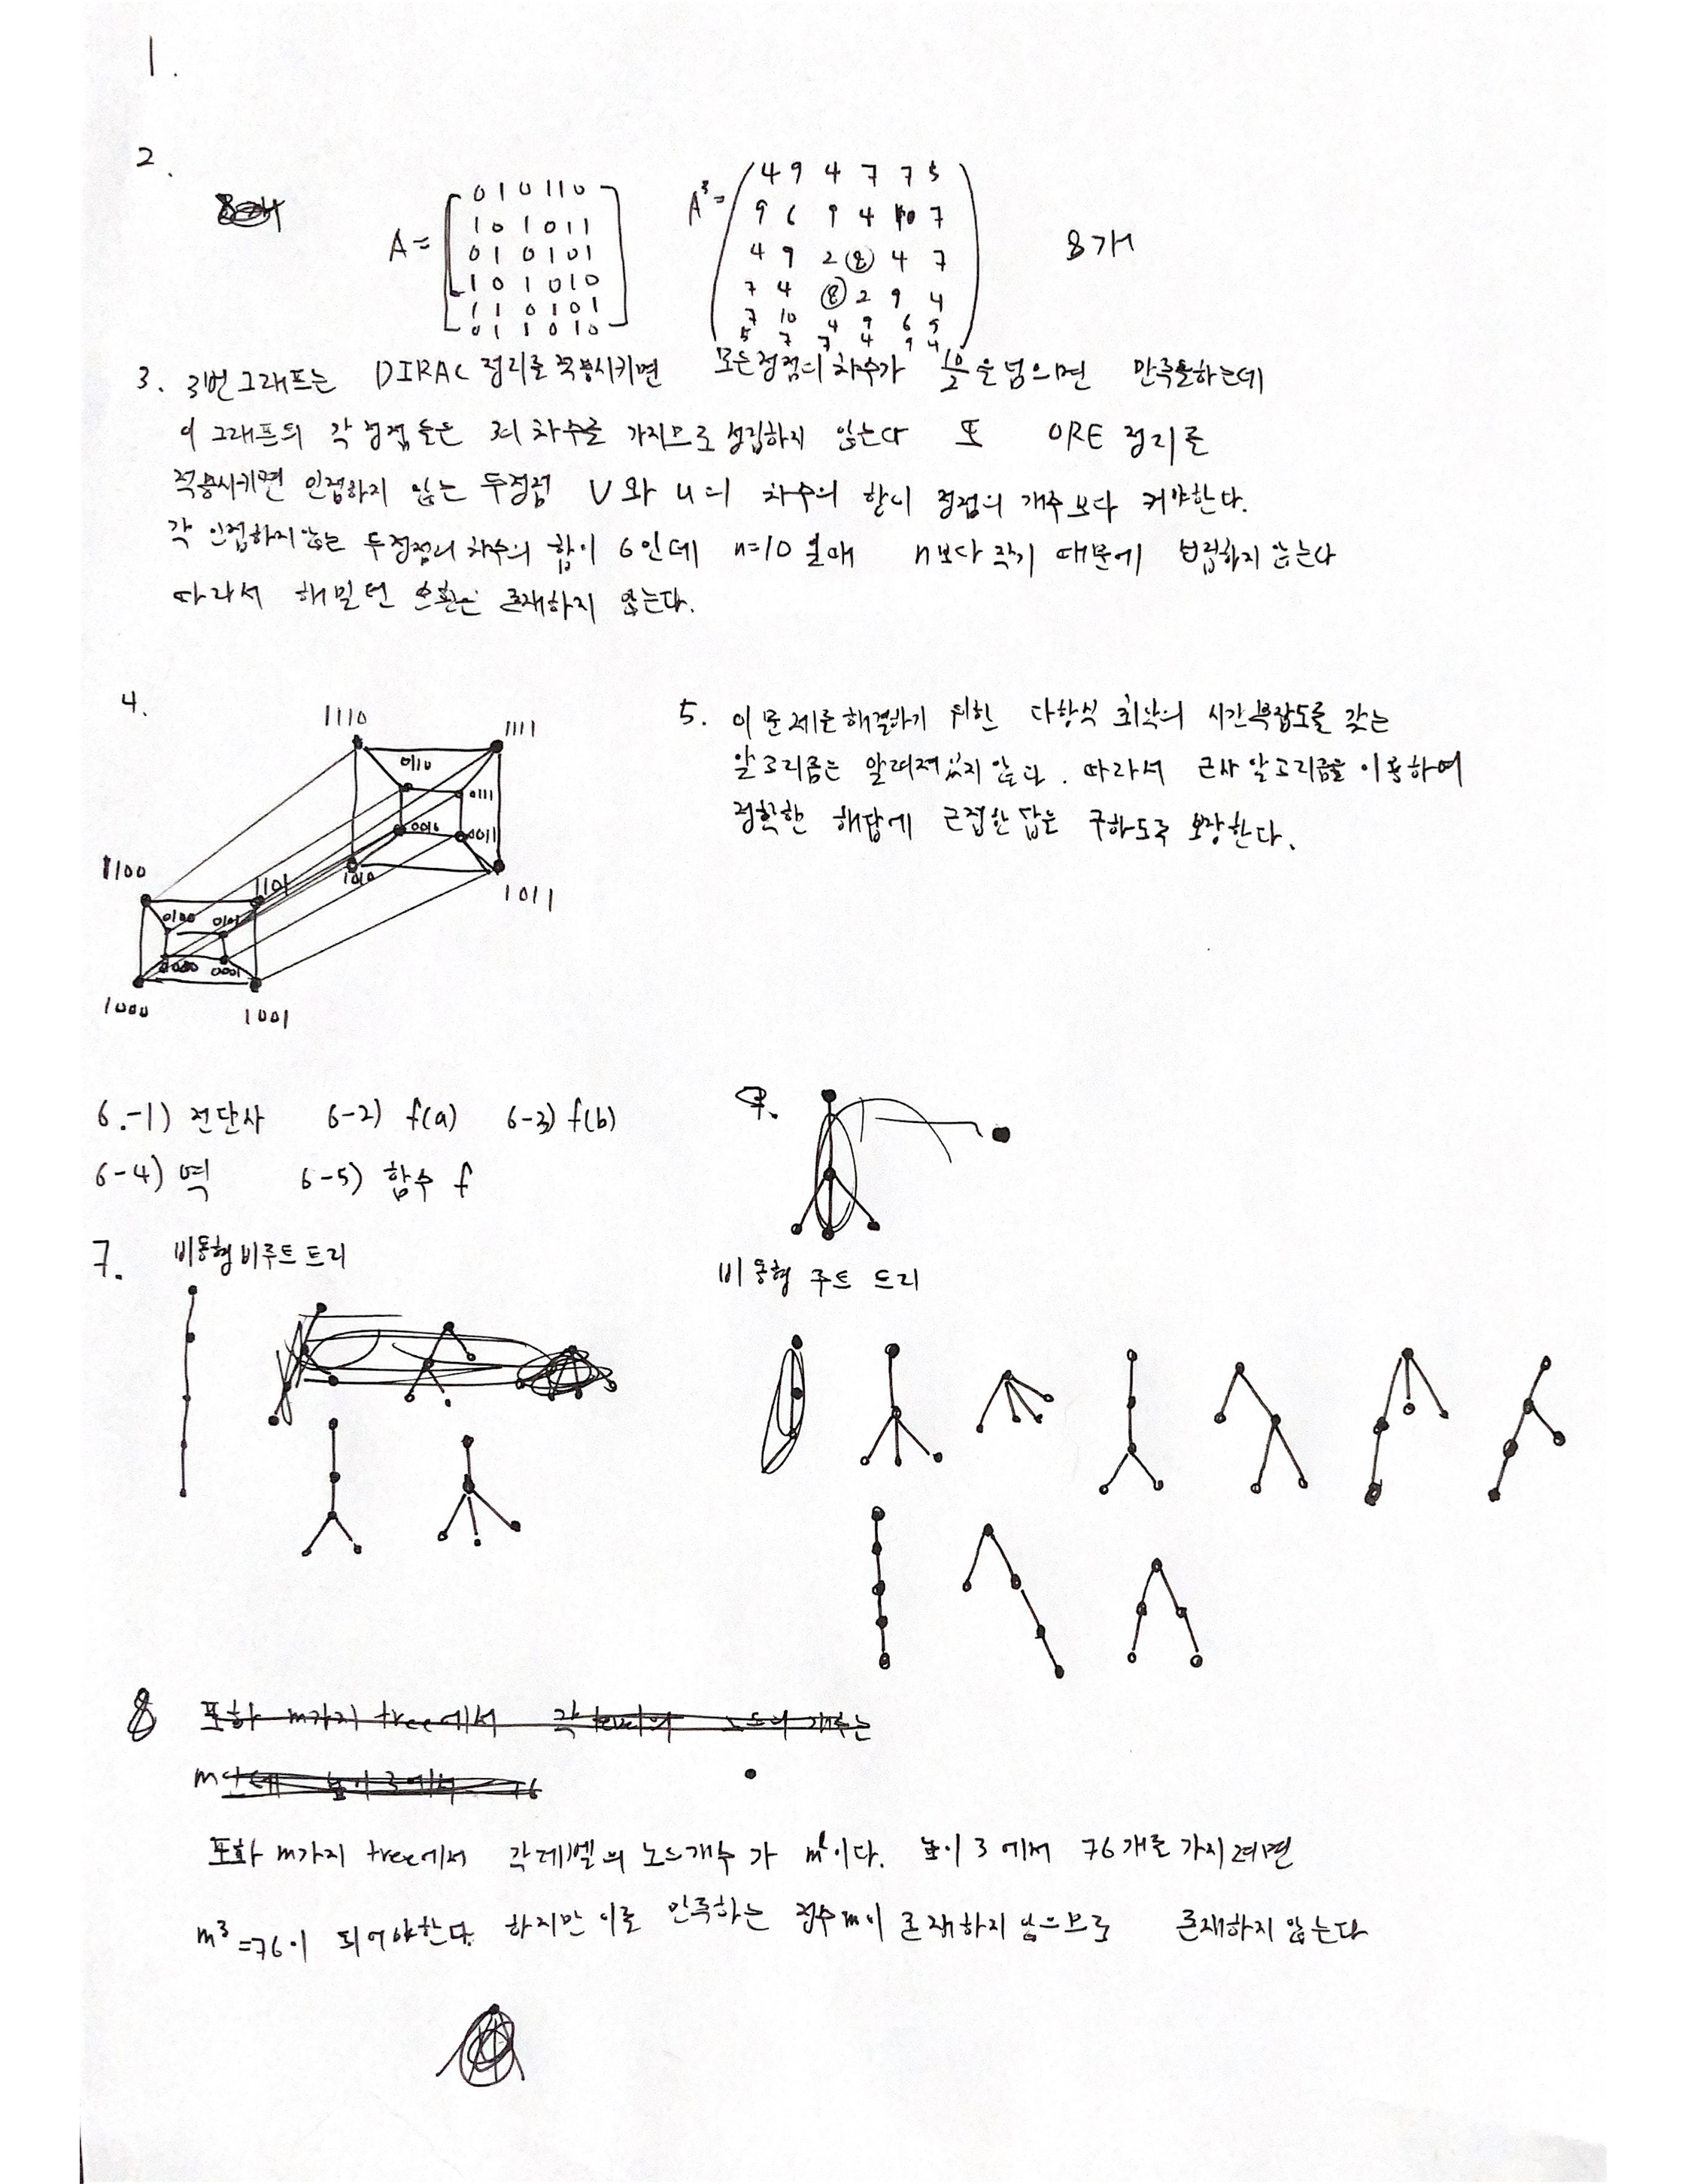 1.
2.
A =
0 1 0 1 1 0
1 0 1 0 1 1
0 1 0 1 0 1
1 0 1 0 1 0
1 1 0 1 0 1
0 1 1 0 1 0
A³ =
4 9 4 7 7 5
9 6 9 4 10 7
4 9 2 8 4 7
7 4 8 2 9 4
7 10 4 9 6 9
5 7 7 4 9 4
8개
3. 3번 그래프는 DIRAC 정리를 적용시키면 모든정점의 차수가 10/2 을 넘으면 만족을하는데
이 그래프의 각 정점들은 3의 차수를 가지므로 성립하지 않는다 또 ORE 정리를
적용시키면 인접하지 않는 두정점 V와 u의 차수의 합이 정점의 개수보다 커야한다.
각 인접하지않는 두정점의 차수의 합이 6인데 n=10 일때 n보다 작기 때문에 성립하지 않는다
따라서 해밀턴 순환은 존재하지 않는다.
4.
1110
1111
0110
0111
0010
0011
1010
1011
1100
1101
0100
0101
0000
0001
1000
1001
5. 이 문제를 해결하기 위한 다항식 최악의 시간복잡도를 갖는
알고리즘은 알려져있지 않다. 따라서 근사 알고리즘을 이용하여
정확한 해답에 근접한 답을 구하도록 보장한다.
6.-1) 전단사 6-2) f(a) 6-3) f(b)
6-4) 역 6-5) 함수 f
7. 비동형비루트 트리
비동형 루트 트리
8
포화 m가지 tree에서 각 level의 노드의 개수는
포화 m가지 tree에서 각레벨의 노드개수가 mˡ이다. 높이 3에서 76개를 가지려면
m³=76이 되어야한다. 하지만 이를 만족하는 정수m이 존재하지 않으므로 존재하지 않는다